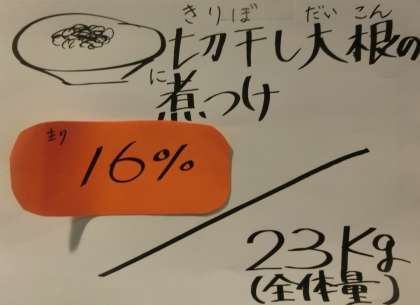 きりぼ だいこん
切干し大根の
に
煮つけ
16%
23Kg
(全体量)